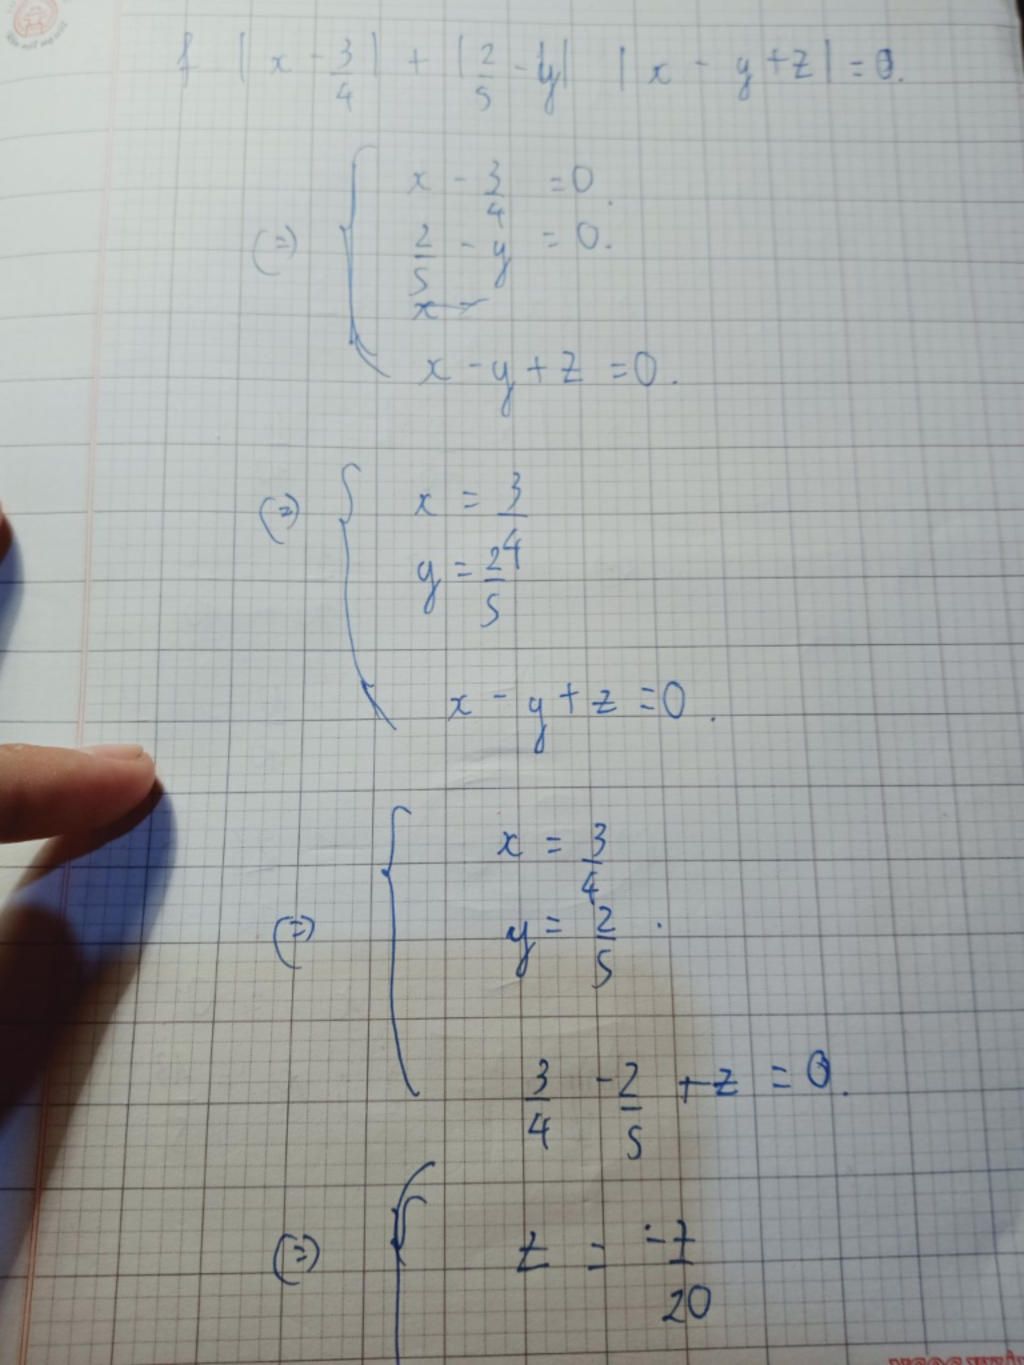 f |x - 3/4| + |2/5 - y| |x - y + z| = 0.
x - 3/4 = 0.
(=) 2/5 - y = 0.
x - y + z = 0.
x = 3/4
(=) y = 2/5
x - y + z = 0.
x = 3/4
(=) y = 2/5.
3/4 - 2/5 + z = 0.
(=) z = -7/20